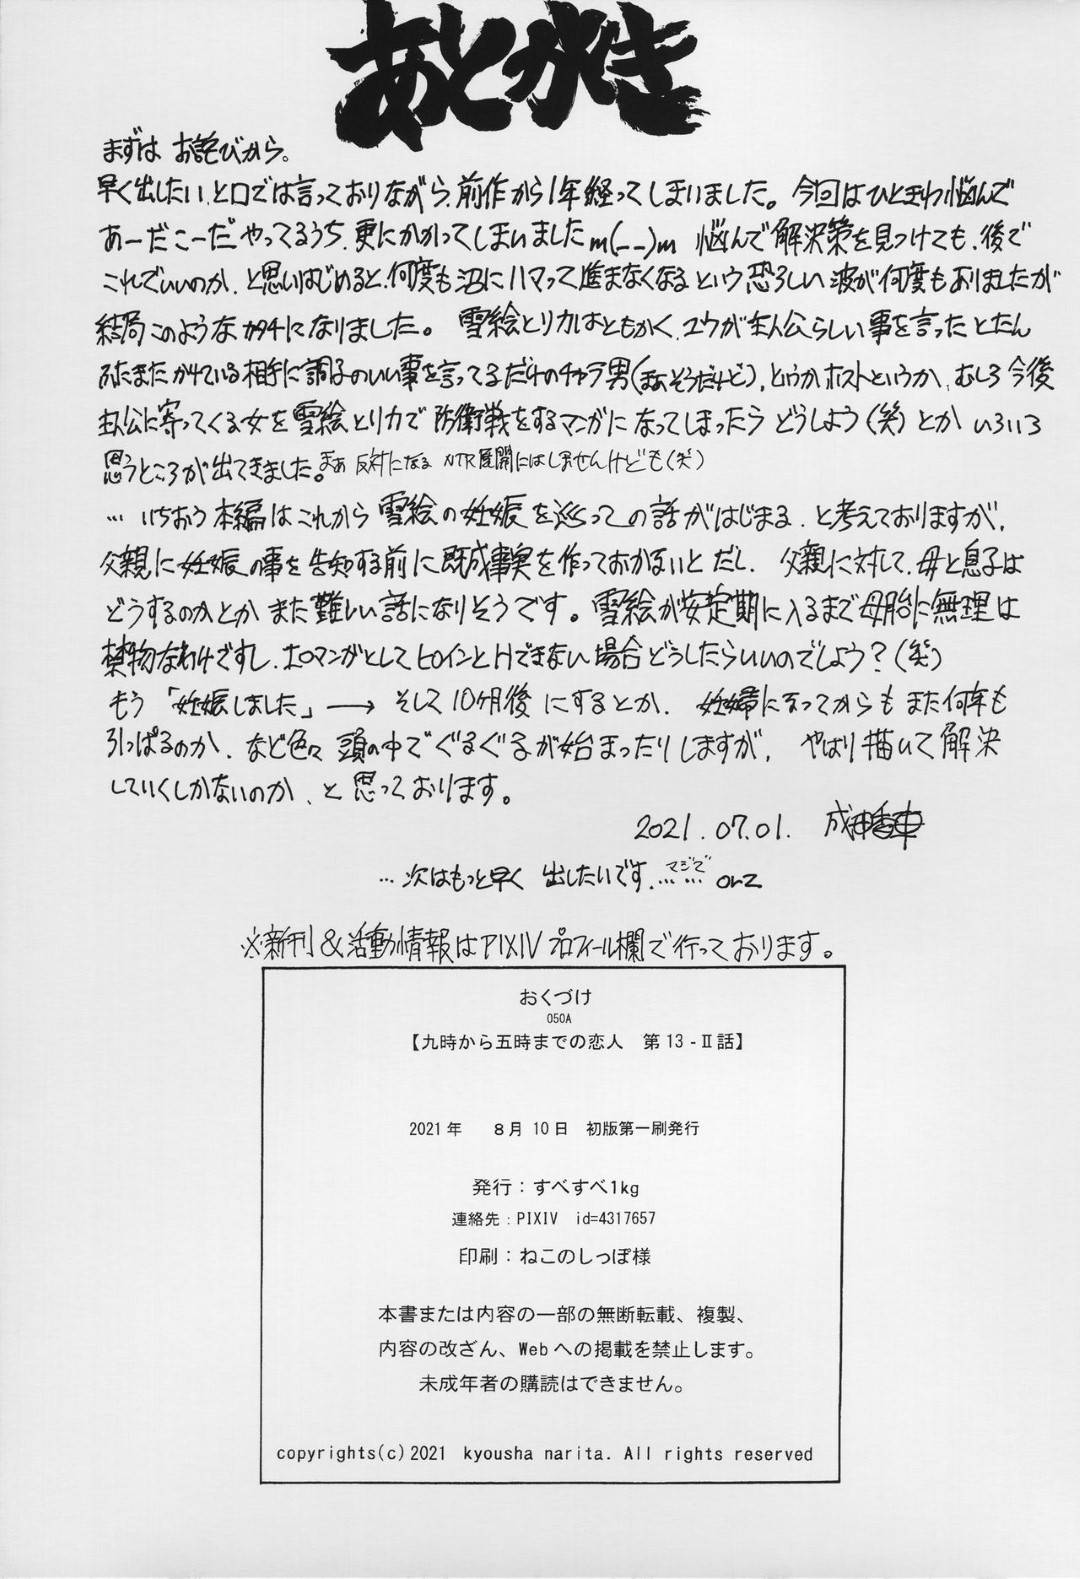 あとがき
まずは お詫びから。
早く出したい、と口では言っておりながら、前作から1年経ってしまいました。今回はひときわ悩んで
あーだこーだ やってるうち、更にかかってしまいましたm(__)m 悩んで解決策を見つけても、後で
これでいいのか、と思いはじめると、何度も沼にハマって進まなくなるという恐ろしい波が何度もありましたが
結局このようなカタチになりました。 雪絵とリカはともかく、ユウが主人公らしい事を言ったとたん
ふたまたかけている相手に調子のいい事を言ってるだけのチャラ男(まあそうだけど)、というかホストというか、むしろ今後
主人公に寄ってくる女を雪絵とリカで防衛戦をするマンガになってしまったらどうしよう(笑)とか いろいろ
思うところが出てきました。まあ 反対になる NTR展開にはしませんけども(笑)
… いちおう本編はこれから 雪絵の妊娠を巡っての話がはじまる、と考えておりますが、
父親に妊娠の事を告知する前に既成事実を作っておかないとだし、 父親に対して、母と息子は
どうするのかとか また難しい話になりそうです。雪絵が安定期に入るまで母胎に無理は
禁物なわけですし、エロマンガとしてヒロインとHできない場合どうしたらいいのでしょう?(笑)
もう「妊娠しました」→ そして10ヶ月後 にするとか、 妊婦になってからも また何年も
引っぱるのか、など色々 頭の中でぐるぐるが始まったりしますが、 やはり描いて解決
していくしかないのか、と思っております。
2021.07.01. 成田香車
… 次はもっと早く 出したいです、マジで…… orz
※新刊&活動情報はPIXIVプロフィール欄で行っております。
おくづけ
050A
【九時から五時までの恋人 第13-Ⅱ話】
2021年 8月10日 初版第一刷発行
発行:すべすべ1kg
連絡先:PIXIV id=4317657
印刷:ねこのしっぽ様
本書または内容の一部の無断転載、複製、
内容の改ざん、Webへの掲載を禁止します。
未成年者の購読はできません。
copyrights(c)2021 kyousha narita. All rights reserved